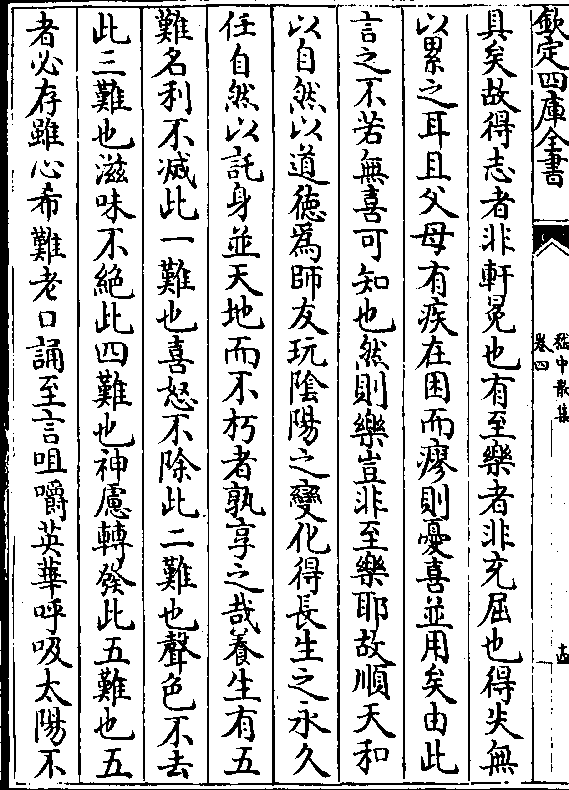 欽定四庫全書
嵇中散集
卷四
具矣故得志者非軒冕也有至樂者非充屈也得失無
以累之耳且父母有疾在困而瘳則憂喜並用矣由此
言之不若無喜可知也然則樂豈非至樂耶故順天和
以自然以道德為師友玩陰陽之變化得長生之永久
任自然以託身並天地而不朽者孰享之哉養生有五
難名利不減此一難也喜怒不除此二難也聲色不去
此三難也滋味不絕此四難也神慮轉發此五難也五
者必存雖心希難老口誦至言咀嚼英華呼吸太陽不